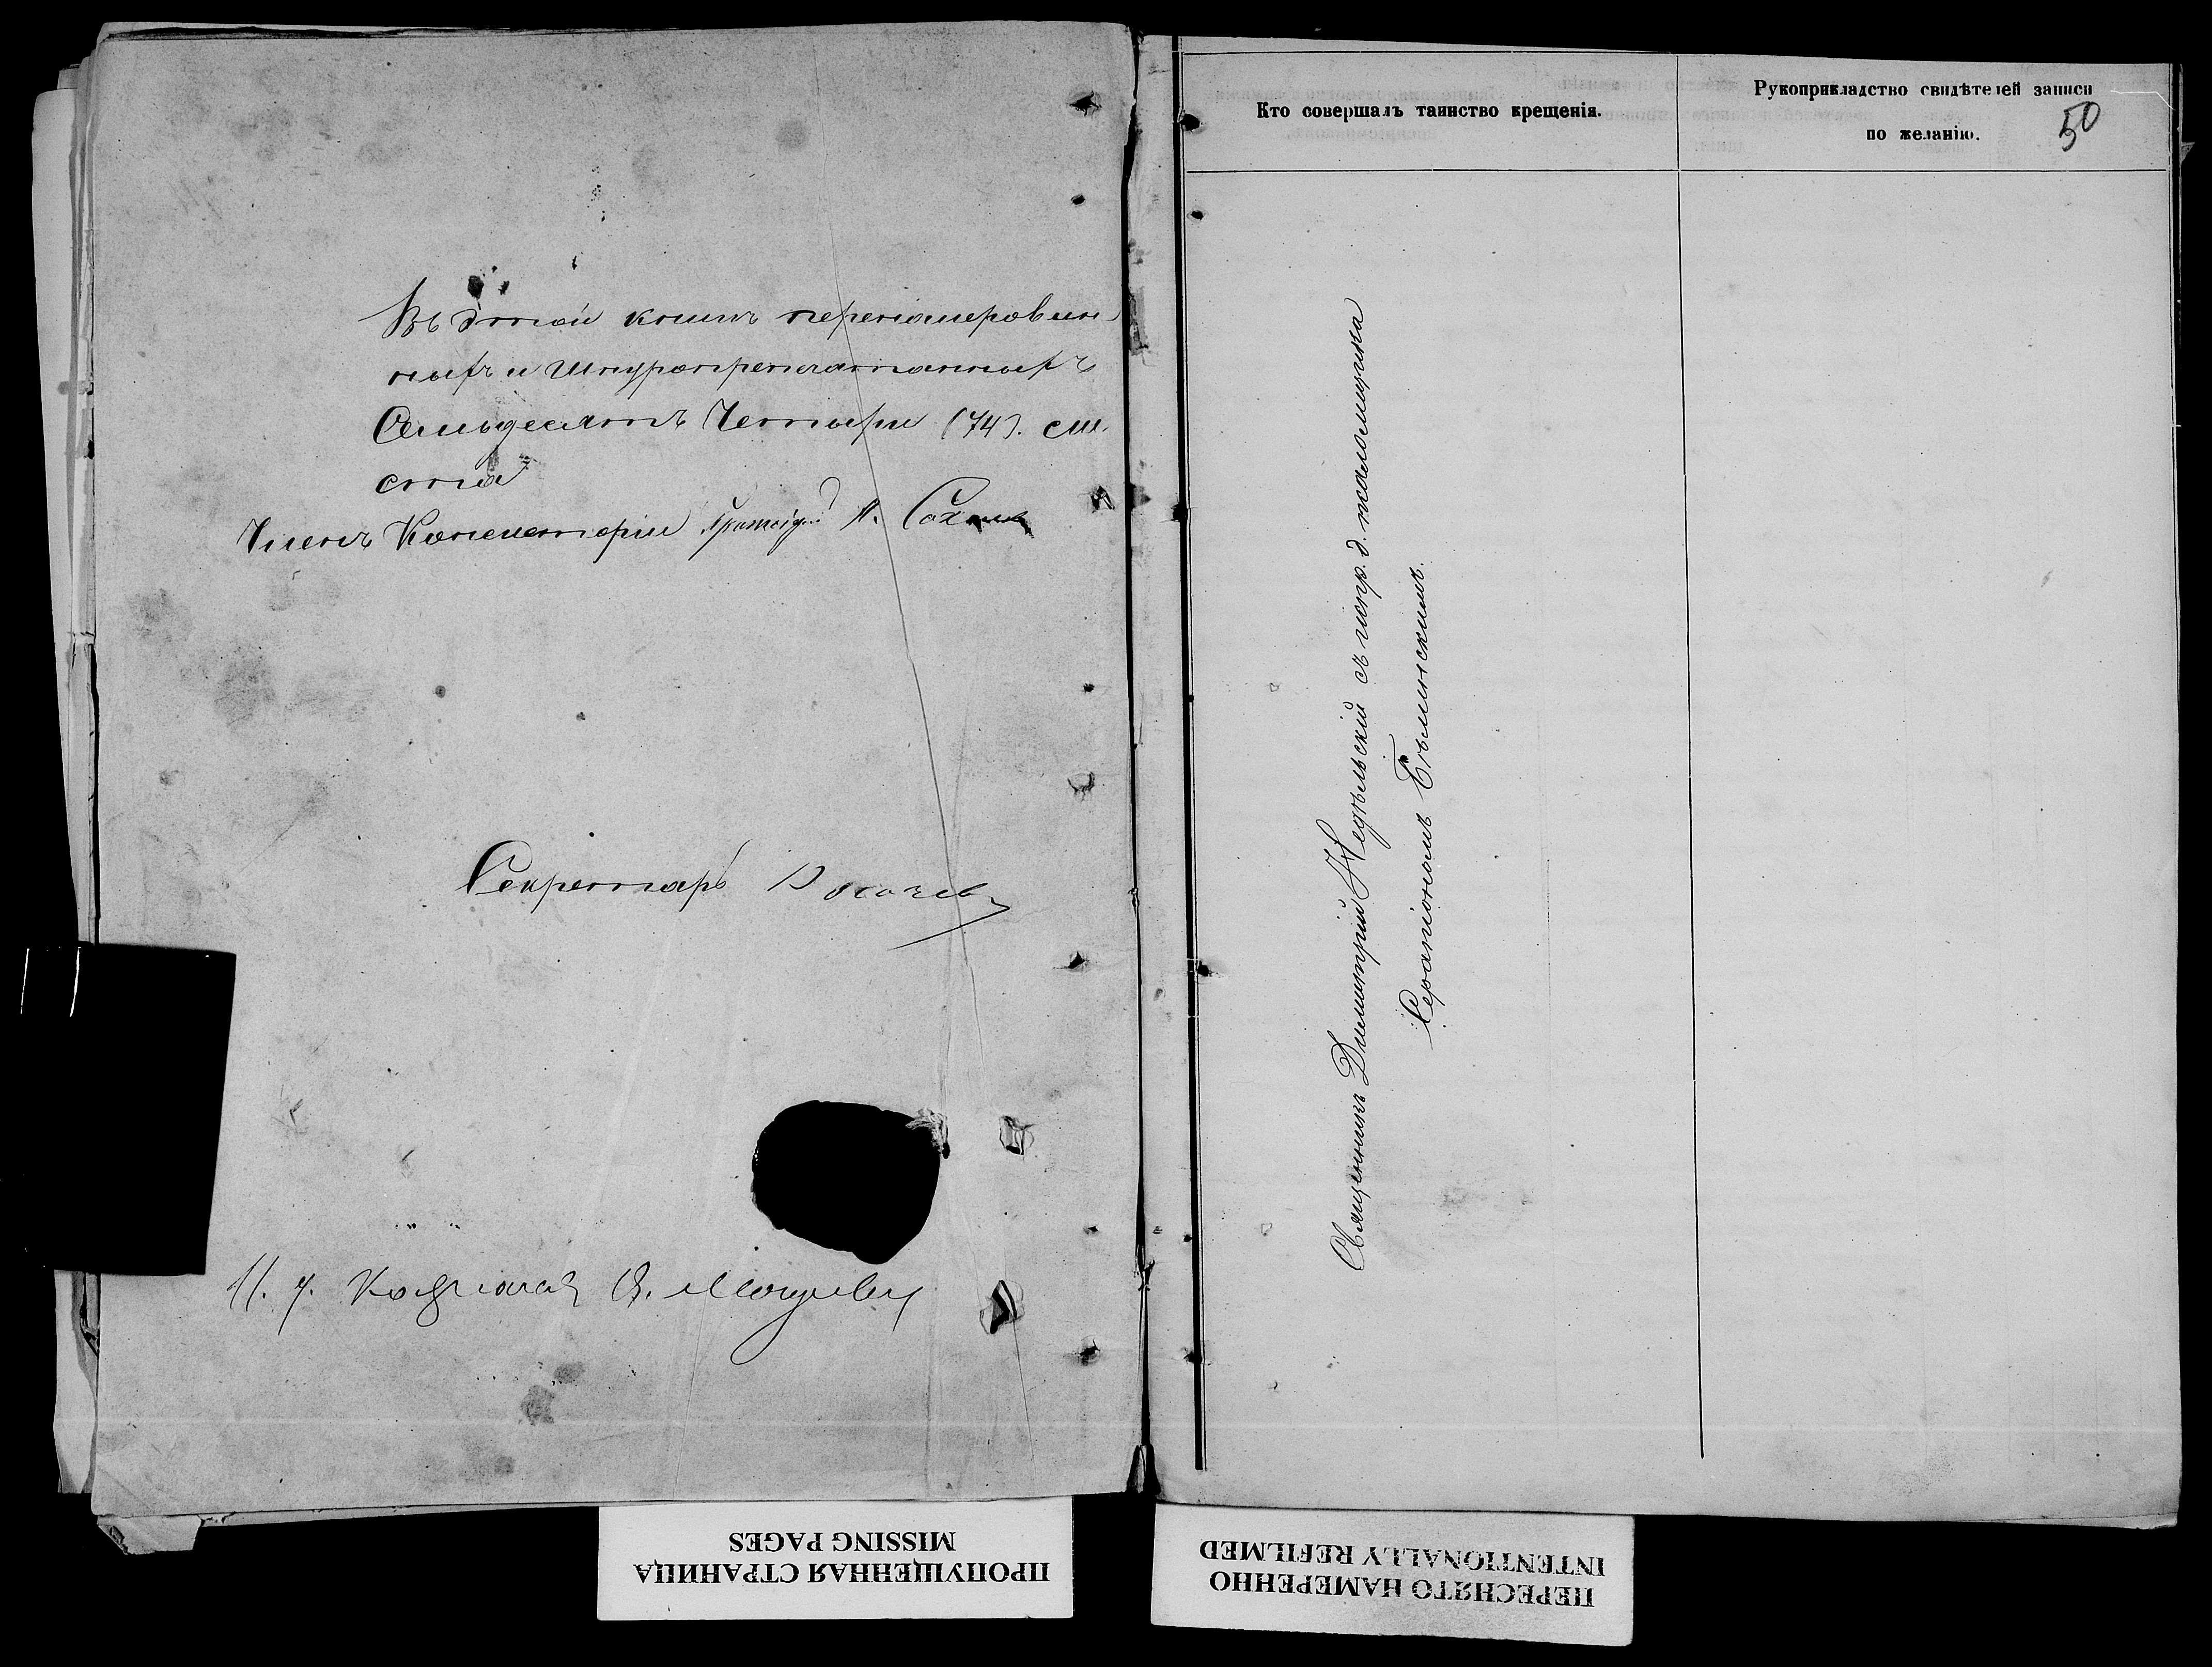 Въ этой книгѣ перенумерован
ныхъ и шнуропрепечатанныхъ
Семьдесятъ Четыре (74). ли
ста
Членъ Консисторіи Протоіерей А.
Секретарь
И. д.
Кто совершалъ таинство крещенія.
Рукоприкладство свидѣтелей записи
по желанію.
50
Священникъ Димитрій Недѣльскій съ испр. д. псаломщика
Серапіономъ Бѣлинскимъ.
ПРОПУЩЕННАЯ СТРАНИЦА
MISSING PAGES
ПЕРЕСНЯТО НАМЕРЕННО
INTENTIONALLY REFILMED